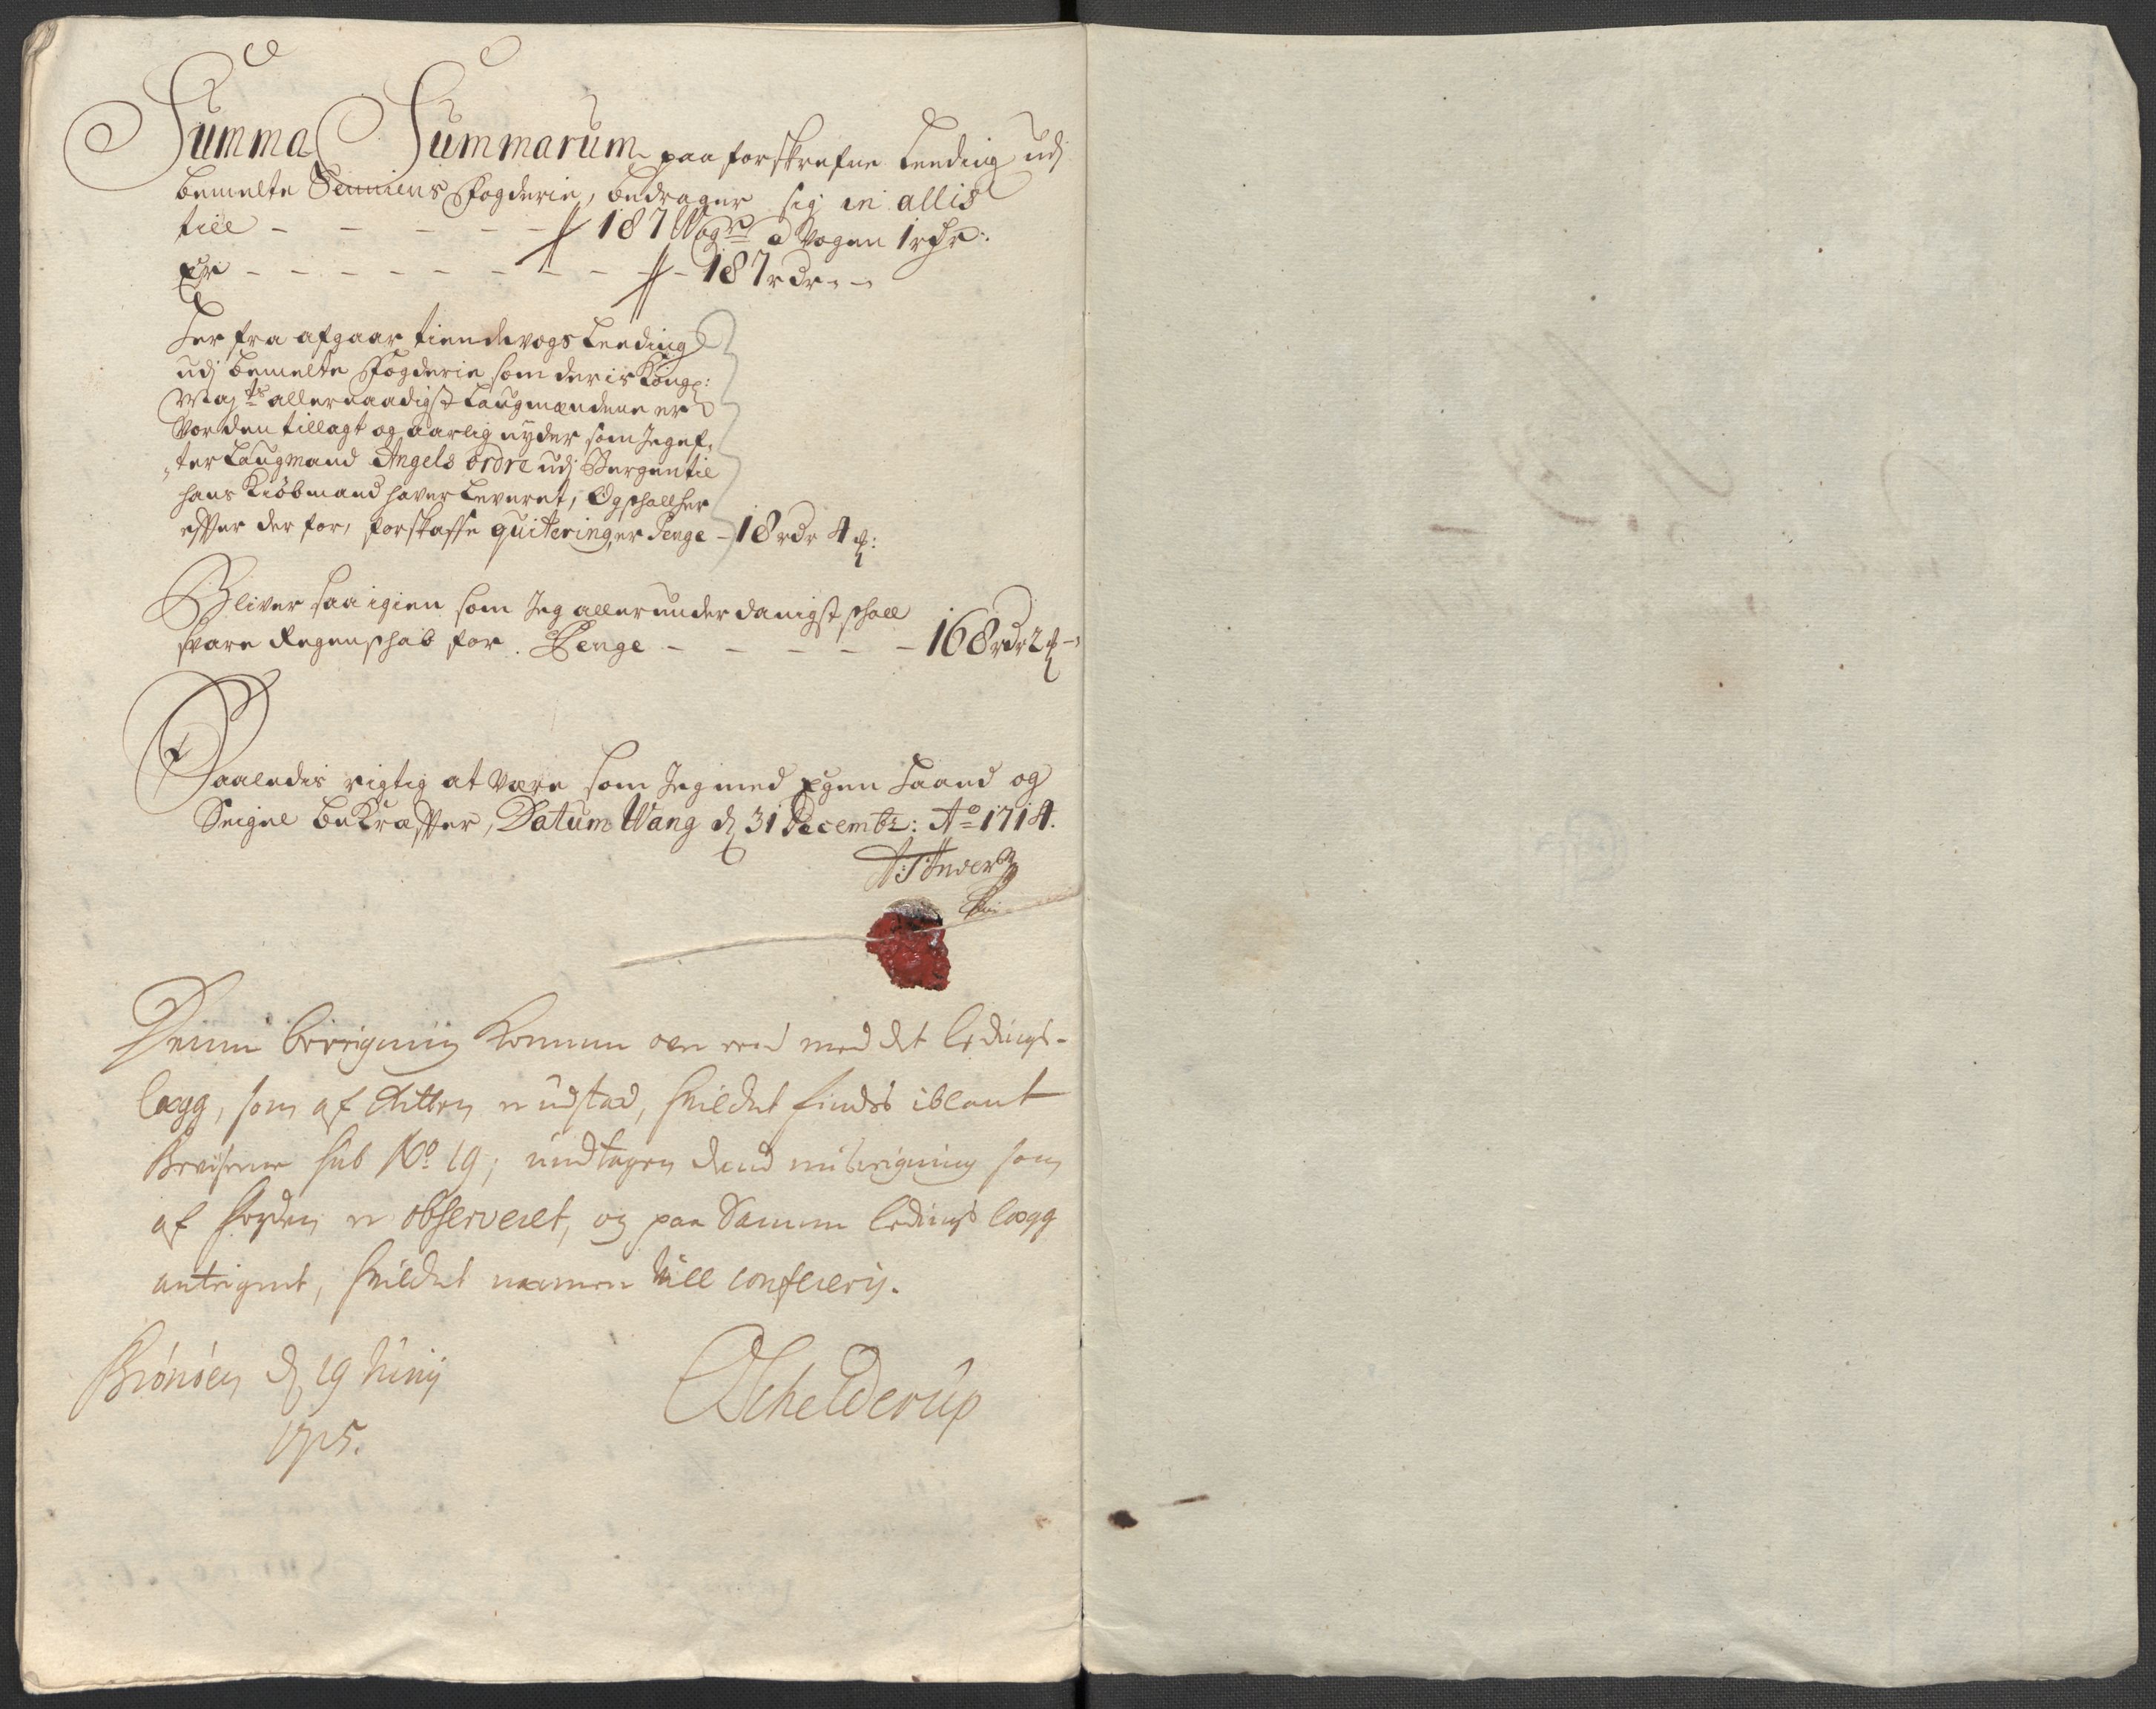 Summa Summarum paa forskrefne Leeding udj
bemelte Senniens Fogderie, bedrager sig in allis
till - - - - - - 187 Wog a Vogen 1 rdr:
Er - - - - - - - - - 187 rdr - -
Her fra afgaar tiende vogs Leeding
udj bemelte Fogderie som deris Kongl:
May:ts allernaadigst Laugmændene er
vorden tillagt og aarlig nyder som Jeg ef„
„ter Laugmand Angels ordre udj Bergen til
hans Kiöbmand haver leveret, Og schall her
effter der for, forskaffe quitering, er Penge - 18 rdr 4
Bliver saa igien som Jeg allerunderdanigst schall
svare Regenschab for. Penge - - - - - 168 rdr 2
Saaledis rigtig at være som Jeg med Egen Haand og
Seigel bekræffter, Datum Wang d 31 Decembr: Ao 1714.
A: Anders
Denne beregning kommer over eens med det ledings-
lægg, som af Retten er udstæd, hvilchet findes iblant
Beviserne sub No 19; undtagen dend misregning som
af er observeret, og paa Samme ledings lægg
antegnet, hvilchet nermere vill confereris.
Brönöen d 19 Junij
1715.
Schelderup